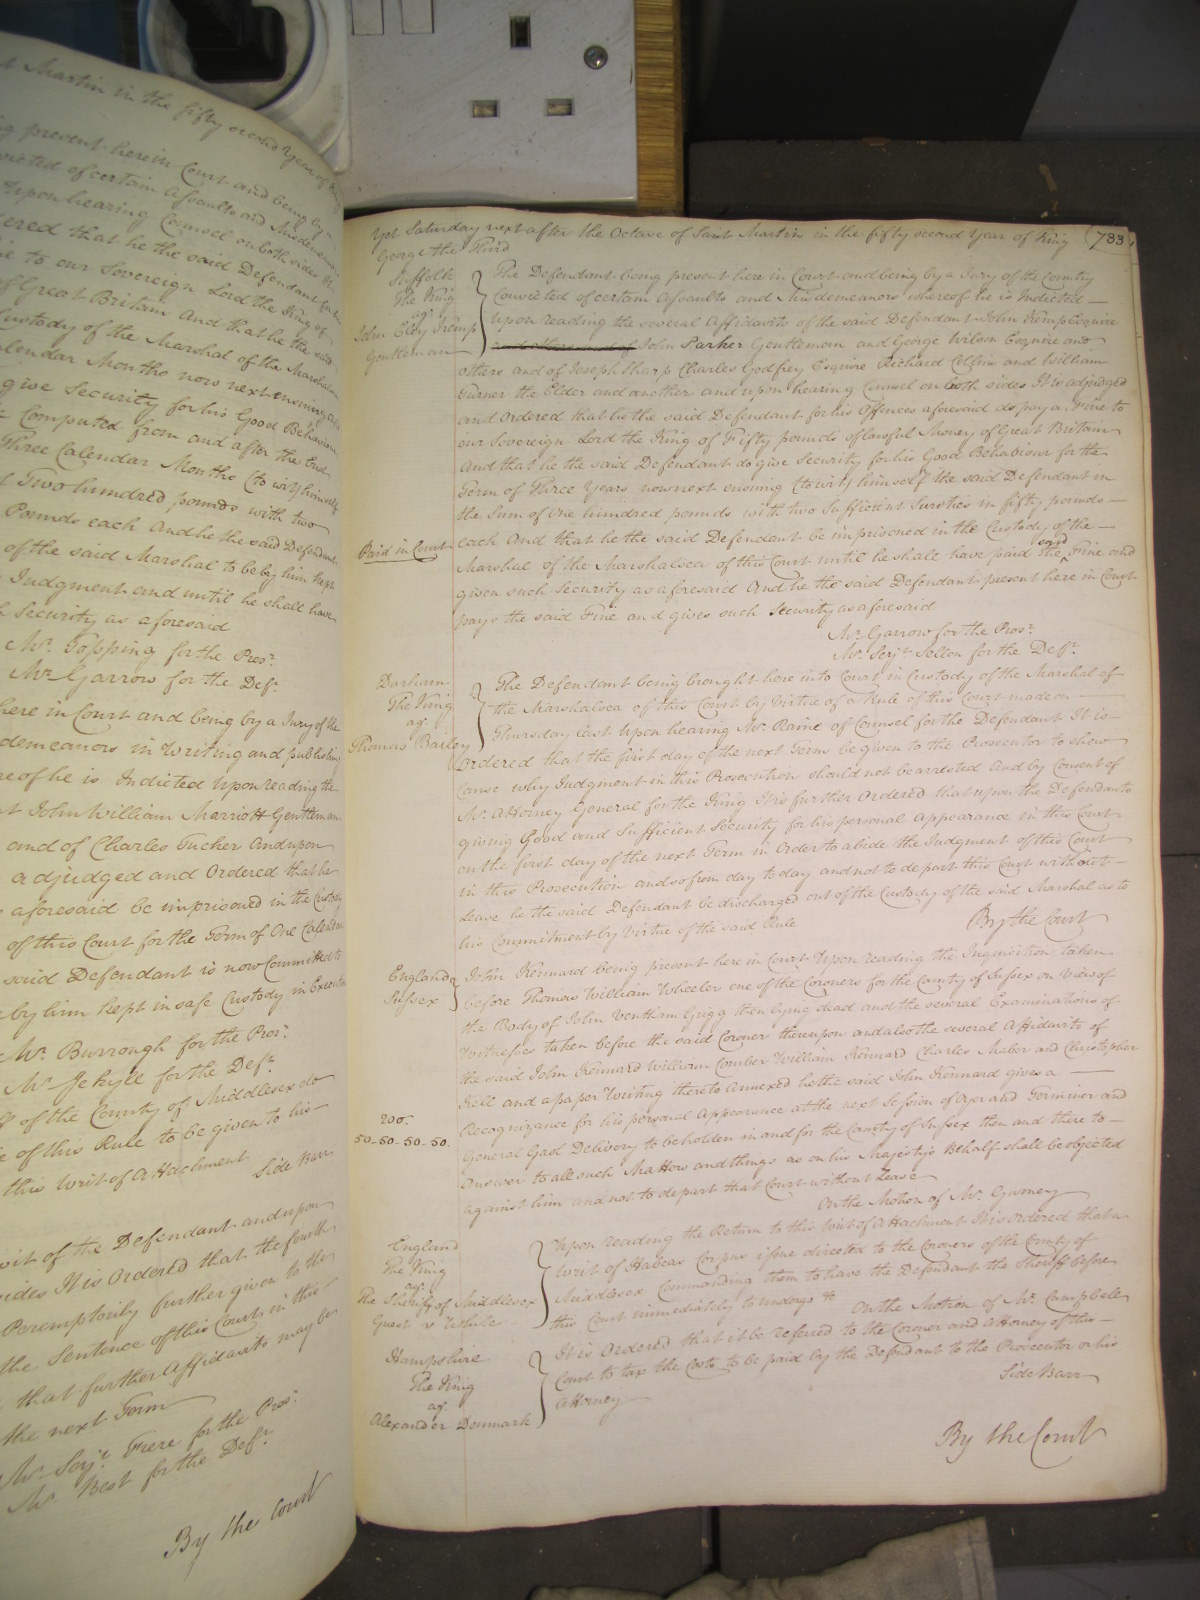 t Martin in the fifty second Year of King
ng present herein Court and being by a
victed of certain Assaults and Misdemeanors
Upon hearing Counsel on both sides It
ered that he the said Defendant for his
ne to our Sovereign Lord the King of
of Great Britain And that he the said
Custody of the Marshal of the Marshalsea
alendar Months now next ensuing and
give Security for his Good Behaviour
Computed from and after the End
Three Calendar Months (to wit) himself
Two hundred pounds with two
Pounds each And he the said Defendant
of the said Marshal to be by him kept
Judgment and until he shall have
h Security as aforesaid
Mr. Topping for the Prosr.
Mr. Garrow for the Deft.
here in Court and being by a Jury of the
demeanors in Writing and publishing
reof he is Indicted Upon reading the
t John William Marriott Gentleman
and of Charles Tucher And upon
adjudged and Ordered that he
aforesaid be imprisoned in the Custody
of this Court for the Term of One Calendar
said Defendant is now Committed to
by him kept in safe Custody in Execution
Mr. Burrough for the Prosr.
Mr. Jekyll for the Deft.
ff of the County of Middlesex do
e of this Rule to be given to his
this Writ of Attachment
Side Barr
vit of the Defendant and upon
sides It is Ordered that the fourth
Peremptorily further given to the
the Sentence of this Court in this
that further Affidavits may be
the next Term
Mr. Serjt. Frere for the Prosr.
Mr. Best for the Deft.
By the Court
Yet Saturday next after the Octave of Saint Martin in the fifty second Year of King 733
George the Third
Suffolk
The King
agt.
John Eldy Kemp
Gentleman
The Defendant being present here in Court and being by a Jury of the County
Convicted of certain Assaults and Misdemeanors whereof he is Indicted
Upon reading the several Affidavits of the said Defendant John Kemp Esquire
John Parker Gentleman and George Wilson Esquire and
others and of Joseph Sharp Charles Godfrey Esquire Richard Collins and William
Turner the Elder and another and upon hearing Counsel on both sides It is adjudged
and Ordered that he the said Defendant for his Offences aforesaid do pay a Fine to
our Sovereign Lord the King of Fifty pounds of lawful Money of Great Britain
And that he the said Defendant do give Security for his Good Behaviour for the
Term of Three Years now next ensuing (to wit) himself the said Defendant in
the Sum of One hundred pounds with two Sufficient Sureties in fifty pounds
each And that he the said Defendant be imprisoned in the Custody of the
Paid in Court
Marshal of the Marshalsea of this Court until he shall have paid the said Fine and
given such Security as aforesaid And he the said Defendant present here in Court
pays the said Fine and gives such Security as aforesaid
Mr. Garrow for the Prosr.
Mr. Serjt. Sellon for the Deft.
Durham
The King
agt.
Thomas Bailey
The Defendant being brought here into Court in Custody of the Marshal of
the Marshalsea of this Court by Virtue of a Rule of this Court made on
Thursday last Upon hearing Mr. Raine of Counsel for the Defendant It is
Ordered that the first day of the next Term be given to the Prosecutor to shew
Cause why Judgment in this Prosecution should not be arrested And by Consent of
Mr. Attorney General for the King It is further Ordered that upon the Defendants
giving Good and Sufficient Security for his personal Appearance in this Court
on the first day of the next Term in Order to abide the Judgment of this Court
in this Prosecution and so from day to day and not to depart this Court without
Leave he the said Defendant be discharged out of the Custody of the said Marshal as to
his Commitment by Virtue of the said Rule
By the Court
England
Sussex
John Kennard being present here in Court Upon reading the Inquisition taken
before Thomas William Wheeler one of the Coroners for the County of Sussex on View of
the Body of John Grigg then lying dead and the several Examinations of
Witnesses taken before the said Coroner thereupon and also the several Affidavits of
the said John Kennard William Comber William Kennard Charles Maber and Christopher
Kell and a paper Writing thereto Annexed he the said John Kennard gives a
200.
50-50-50-50.
Recognizance for his personal Appearance at the next Session of Oyer and Terminer and
General Gaol Delivery to be holden in and for the County of Sussex then and there to
Answer to all such Matters and things as on his Majesty's Behalf shall be objected
against him and not to depart that Court without Leave
On the Motion of Mr. Gurney
England
The King
agt.
The Sheriff of Middlesex
Guest v White
Upon reading the Return to this Writ of Attachment It is ordered that a
Writ of Habeas Corpus issue directed to the Coroners of the County of
Middlesex Commanding them to have the Defendant the Sheriff before
this Court immediately to undergo &c
On the Motion of Mr. Campbell
Hampshire
The King
agt.
Alexander Denmark
It is Ordered that it be referred to the Coroner and Attorney of this
Court to tax the Costs to be paid by the Defendant to the Prosecutor or his
Attorney
Side Barr
By the Court